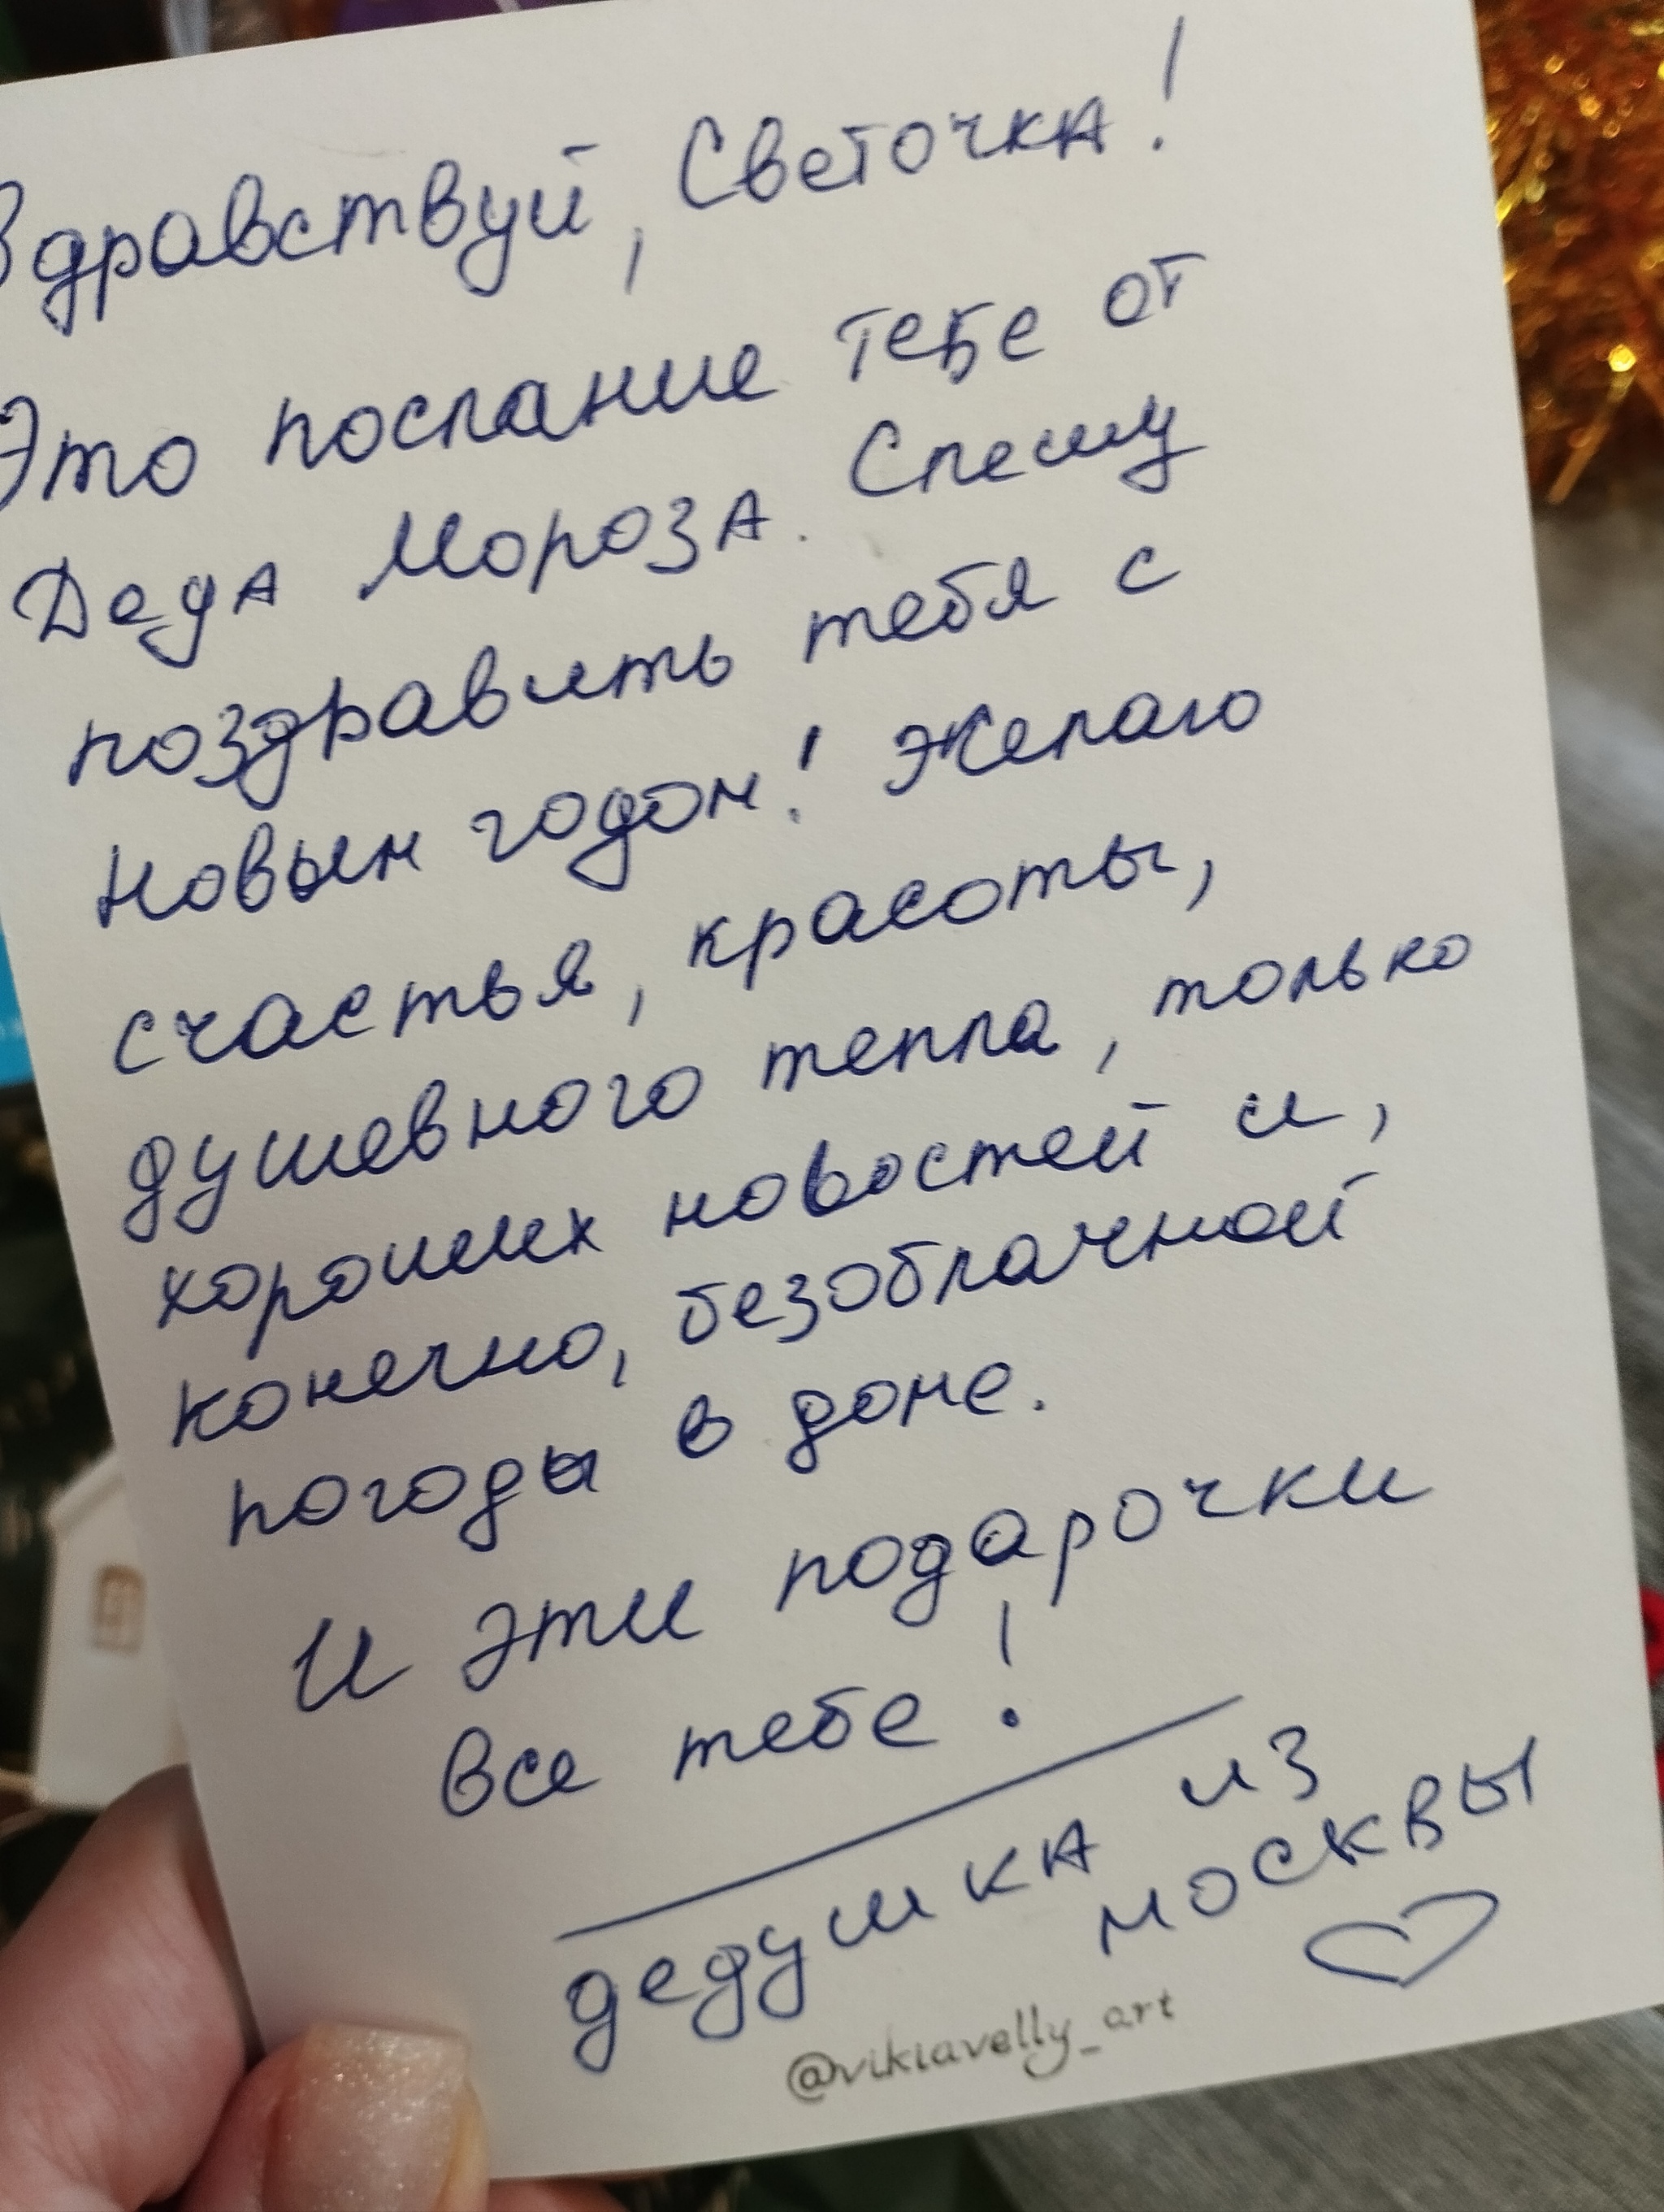 Здравствуй, Светочка!
Это послание тебе от
Деда Мороза. Спешу
поздравить тебя с
Новым годом! Желаю
счастья, красоты,
душевного тепла, только
хороших новостей и,
конечно, безоблачной
погоды в доме.
И эти подарочки
все тебе!
дедушка из
Москвы
@vikiavelly_art